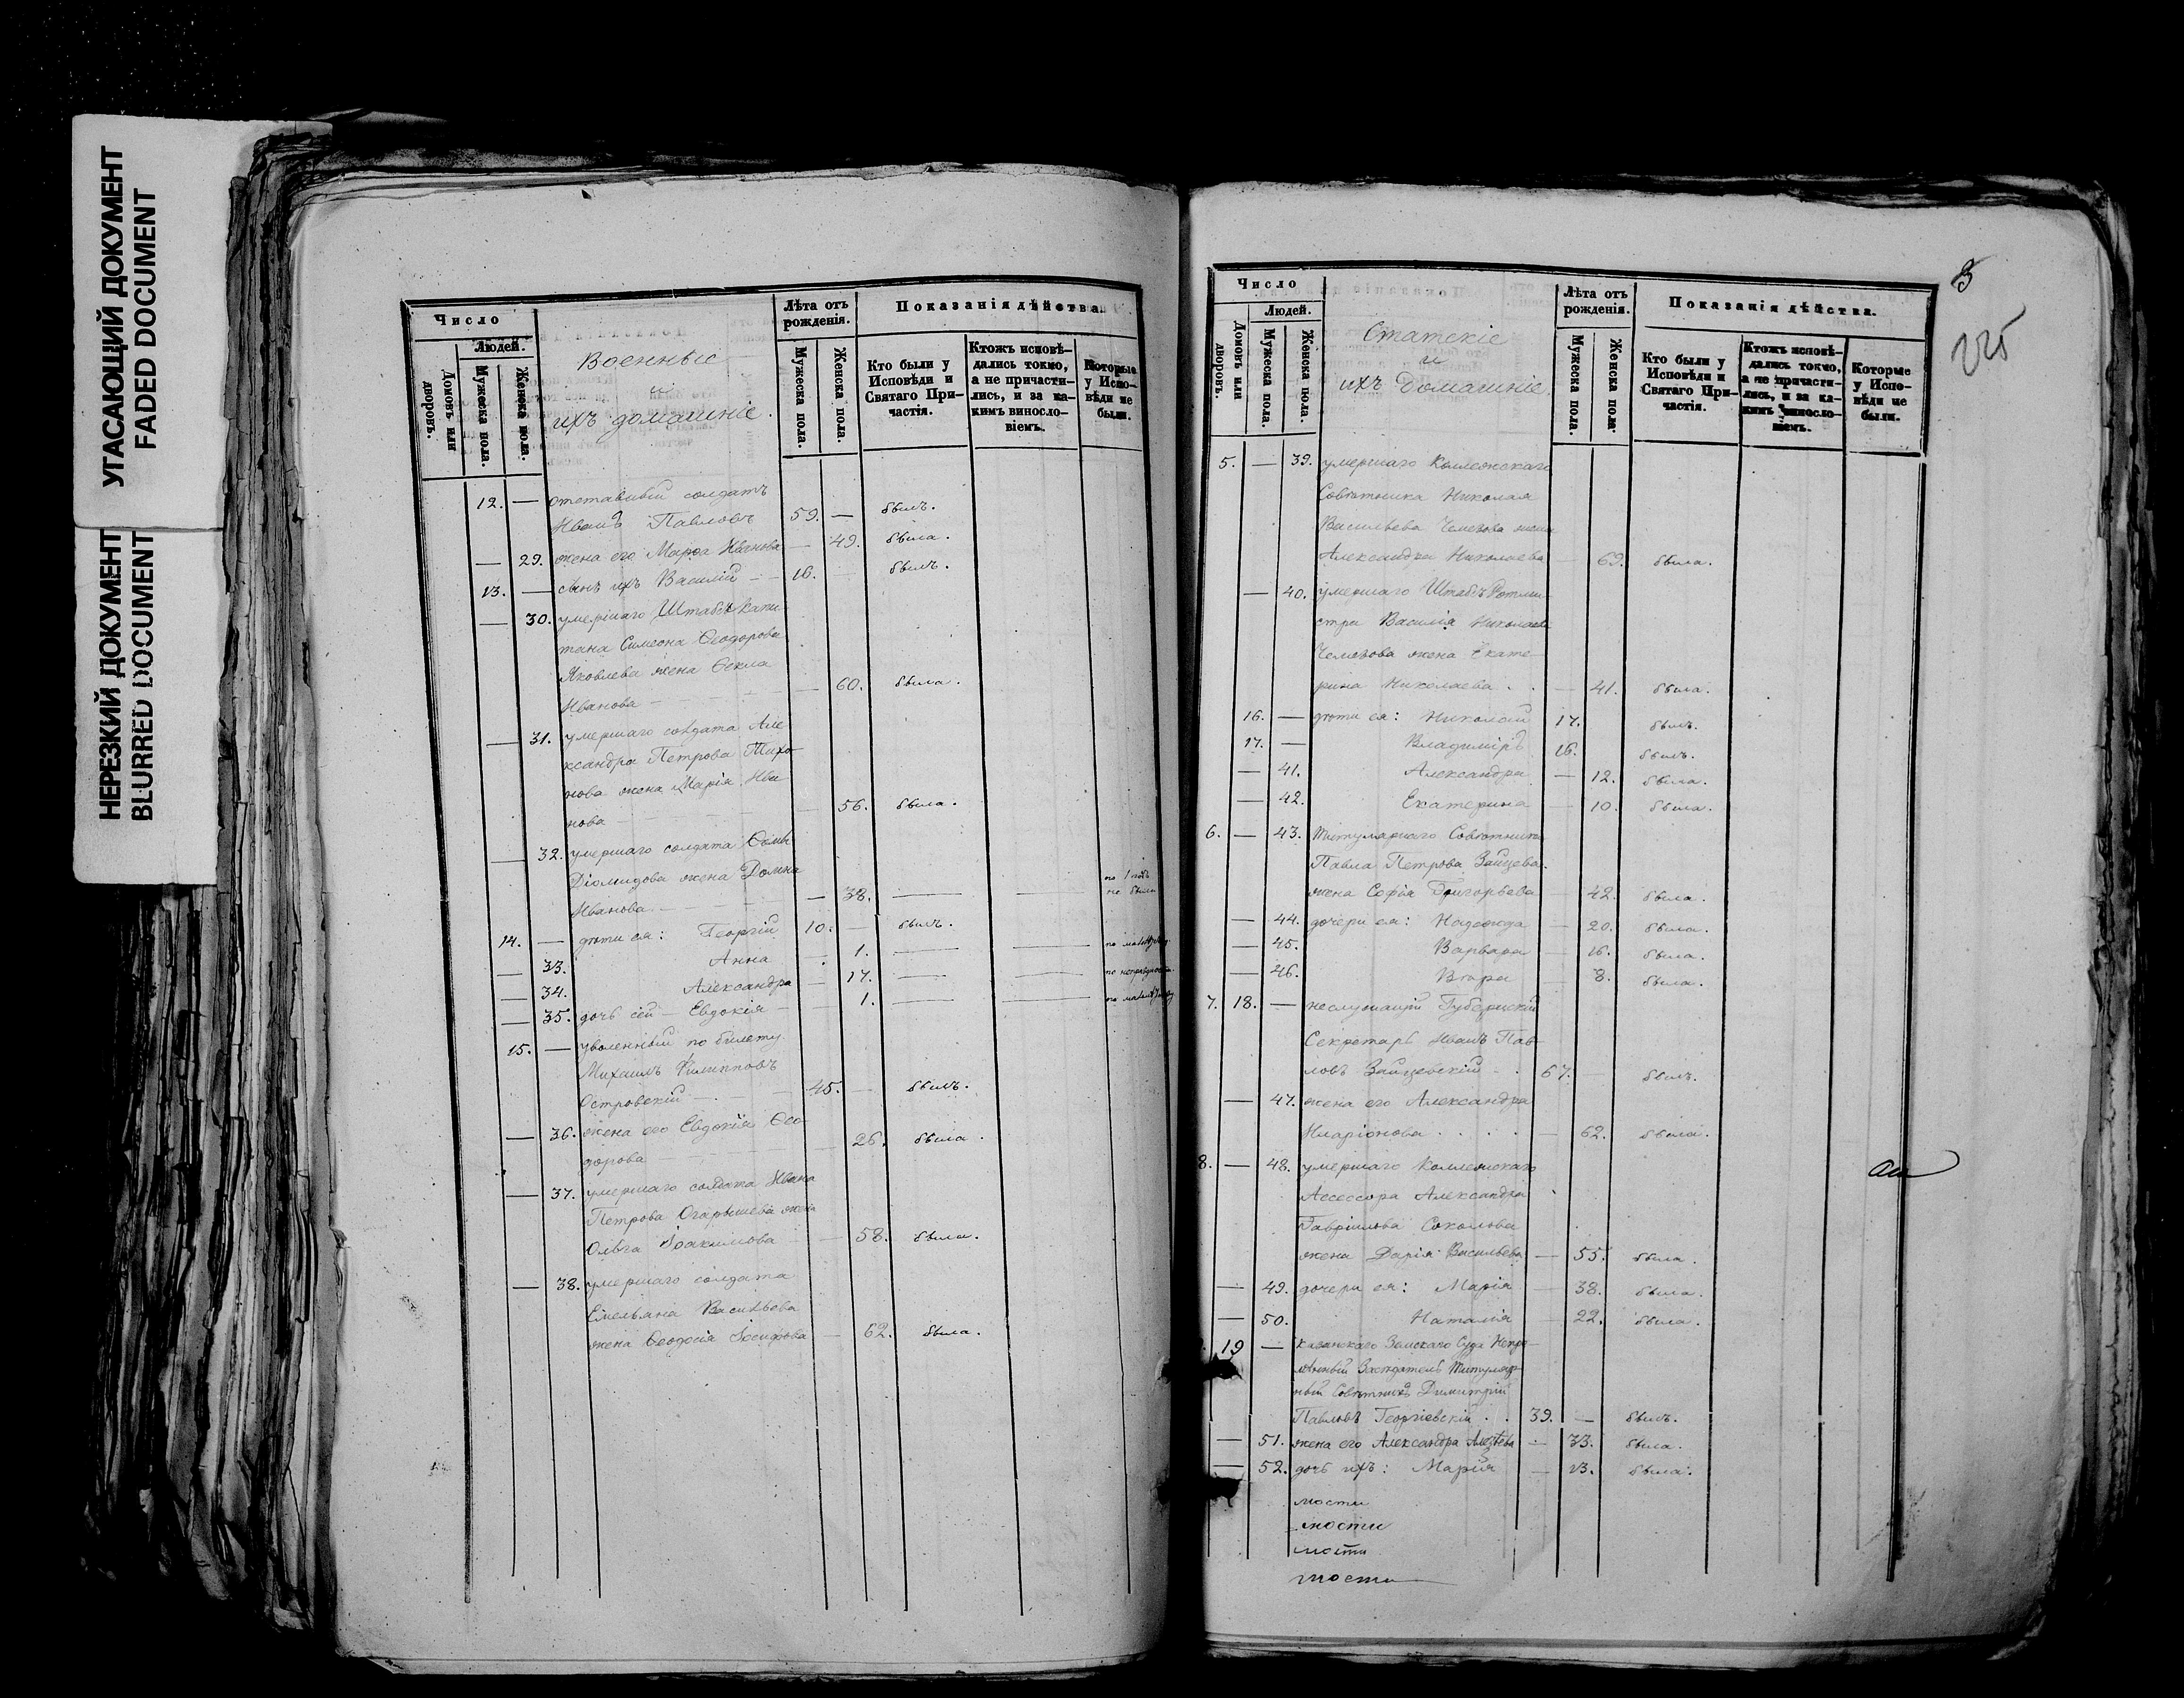 УГАСАЮЩИЙ ДОКУМЕНТ
FADED DOCUMENT
НЕРЕЗКИЙ ДОКУМЕНТ
BLURRED DOCUMENT
Число
Людей.
Домовъ или дворовъ.
Мужеска пола.
Женска пола.
Военные
и
ихъ домашніе.
Лѣта отъ рожденія.
Мужеска пола.
Женска пола.
Показанія дѣйства.
Кто были у Исповѣди и Святаго Причастія.
Ктожъ исповѣдались токмо, а не причастились, и за какимъ винословіемъ.
Которые у Исповѣди не были.
12. — отставный солдатъ
Иванъ Павловъ 59. — былъ.
— 29. жена его Марѳа Иванова — 49. была.
13. — сынъ ихъ Василій — 16. — былъ.
— 30. умершаго Штабсъ Капи-
тана Симеона Ѳеодорова
Яковлева жена Ѳекла
Иванова — 60. была.
— 31. умершаго солдата Але
ксандра Петрова Тихо-
нова жена Марія Ива
нова — 56. была.
— 32. умершаго солдата Ѳомы
Діомидова жена Домна
Иванова — 38. — — не была
14. — дѣти ея: Георгій 10. — былъ.
— 33. Анна — 1. — —
— 34. Александра — 17. — —
— 35. дочь сей — Евдокія — 1. — —
15. — уволенный по билету
Михаилъ Филипповъ
Островскій — 45. — былъ.
— 36. жена его Евдокія Ѳео
дорова — 26. была.
— 37. умершаго солдата Ивана
Петрова Огарышева жена
Ольга Іоакимова — 58. была.
— 38. умершаго солдата
Емельяна Васильева
жена Ѳеодосія Іосифова — 62. была.
225
Число
Людей.
Домовъ или дворовъ.
Мужеска пола.
Женска пола.
Статскіе
и
ихъ домашніе.
Лѣта отъ рожденія.
Мужеска пола.
Женска пола.
Показанія дѣйства.
Кто были у Исповѣди и Святаго Причастія.
Ктожъ исповѣдались токмо, а не причастились, и за какимъ винословіемъ.
Которые у Исповѣди не были.
5. — 39. умершаго Коллежскаго
Совѣтника Николая
Васильева Чемезова жена
Александра Николаева — 69. была.
— 40. умершаго Штабъ Ротми-
стра Василія Николаева
Чемезова жена Екате-
рина Николаева . . — 41. была.
16. — дѣти ея: Николай 17. былъ.
17. — Владиміръ 16. былъ.
— 41. Александра — 12. была.
— 42. Екатерина — 10. была.
6. — 43. Титулярнаго Совѣтника
Павла Петрова Зайцева
жена Софія Григорьева — 42. была.
— 44. дочери ея: Надежда — 20. была.
— 45. Варвара — 16. была.
— 46. Вѣра — 8. была.
7. 18. — неслужащій Губернскій
Секретарь Иванъ Пав-
ловъ Зайцевскій — . 67. — былъ.
— 47. жена его Александра
Иларіонова . . . . — 62. была.
8. — 48. умершаго Коллежскаго
Ассесора Александра
Гавріилова Соколова
жена Дарія Васильева — 55. была.
— 49. дочери ея: Марія — 38. была.
— 50. Наталія — 22. была.
19 — Казанскаго Земскаго Суда Непре-
мѣнный Засѣдатель Титуляр-
ный Совѣтникъ Димитрій
Павловъ Георгіевскій . . 39. — былъ.
— 51. жена его Александра — 33. была.
— 52. дочь ихъ: Марія — 13. была.
мости
мости
мости
мости